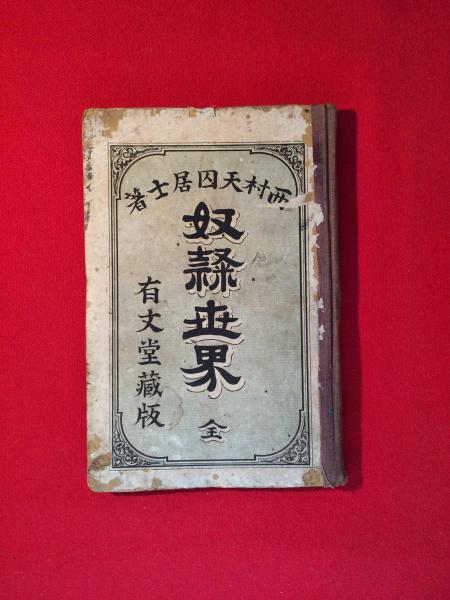 西村天囚居士著
奴隷世界 全
有文堂藏版